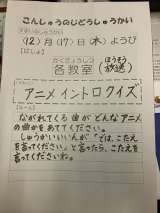 こんしゅうのじどうしゅうかい
(12)月(17)日(木)ようび
[ばしょ]
かくきょうしつ ほうそう
各教室(放送)
アニメイントロクイズ
[ルール]
ながれてくる曲がどんなアニメ
の曲かをあててください。
しゅうかいいいんが「では、こたえ
を言ってください」と言ったら、こたえを
言ってくださいね。